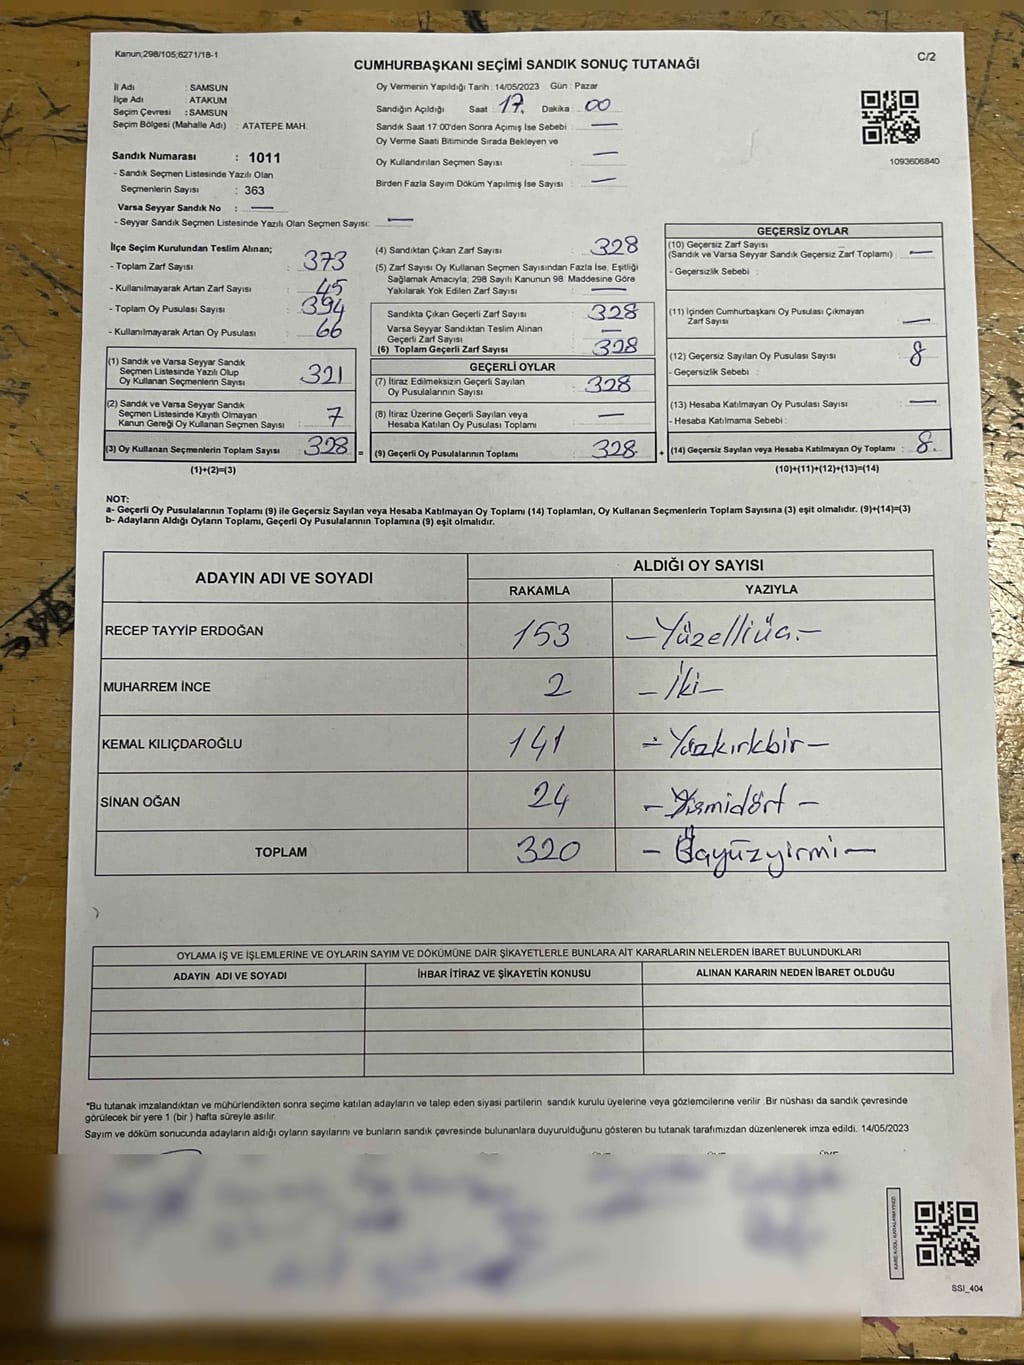 Kanun;298/105;6271/18-1
C/2
CUMHURBAŞKANI SEÇİMİ SANDIK SONUÇ TUTANAĞI
İl Adı : SAMSUN
İlçe Adı : ATAKUM
Seçim Çevresi : SAMSUN
Seçim Bölgesi (Mahalle Adı) : ATATEPE MAH.
Oy Vermenin Yapıldığı Tarih : 14/05/2023 Gün : Pazar
Sandığın Açıldığı Saat : 17. Dakika : 00
Sandık Saat 17:00'den Sonra Açımış İse Sebebi : —
Oy Verme Saati Bitiminde Sırada Bekleyen ve
Oy Kullandırılan Seçmen Sayısı : —
Birden Fazla Sayım Döküm Yapılmış İse Sayısı : —
1093606840
Sandık Numarası : 1011
- Sandık Seçmen Listesinde Yazılı Olan
Seçmenlerin Sayısı : 363
Varsa Seyyar Sandık No : —
- Seyyar Sandık Seçmen Listesinde Yazılı Olan Seçmen Sayısı: —
İlçe Seçim Kurulundan Teslim Alınan;
- Toplam Zarf Sayısı : 373
- Kullanılmayarak Artan Zarf Sayısı : 45
- Toplam Oy Pusulası Sayısı : 394
- Kullanılmayarak Artan Oy Pusulası : 66
(1) Sandık ve Varsa Seyyar Sandık
Seçmen Listesinde Yazılı Olup
Oy Kullanan Seçmenlerin Sayısı : 321
(2) Sandık ve Varsa Seyyar Sandık
Seçmen Listesinde Kayıtlı Olmayan
Kanun Gereği Oy Kullanan Seçmen Sayısı : 7
(3) Oy Kullanan Seçmenlerin Toplam Sayısı : 328
(1)+(2)=(3)
(4) Sandıktan Çıkan Zarf Sayısı : 328
(5) Zarf Sayısı Oy Kullanan Seçmen Sayısından Fazla İse, Eşitliği
Sağlamak Amacıyla; 298 Sayılı Kanunun 98. Maddesine Göre
Yakılarak Yok Edilen Zarf Sayısı : —
Sandıkta Çıkan Geçerli Zarf Sayısı : 328
Varsa Seyyar Sandıktan Teslim Alınan
Geçerli Zarf Sayısı : —
(6) Toplam Geçerli Zarf Sayısı : 328
GEÇERLİ OYLAR
(7) İtiraz Edilmeksizin Geçerli Sayılan
Oy Pusulalarının Sayısı : 328
(8) İtiraz Üzerine Geçerli Sayılan veya
Hesaba Katılan Oy Pusulası Toplamı : —
= (9) Geçerli Oy Pusulalarının Toplamı : 328
GEÇERSİZ OYLAR
(10) Geçersiz Zarf Sayısı
(Sandık ve Varsa Seyyar Sandık Geçersiz Zarf Toplamı) : —
- Geçersizlik Sebebi :
(11) İçinden Cumhurbaşkanı Oy Pusulası Çıkmayan
Zarf Sayısı : —
(12) Geçersiz Sayılan Oy Pusulası Sayısı : 8
- Geçersizlik Sebebi :
(13) Hesaba Katılmayan Oy Pusulası Sayısı : —
- Hesaba Katılmama Sebebi :
+ (14) Geçersiz Sayılan veya Hesaba Katılmayan Oy Toplamı : 8.
(10)+(11)+(12)+(13)=(14)
NOT:
a- Geçerli Oy Pusulalarının Toplamı (9) ile Geçersiz Sayılan veya Hesaba Katılmayan Oy Toplamı (14) Toplamları, Oy Kullanan Seçmenlerin Toplam Sayısına (3) eşit olmalıdır. (9)+(14)=(3)
b- Adayların Aldığı Oyların Toplamı, Geçerli Oy Pusulalarının Toplamına (9) eşit olmalıdır.
ADAYIN ADI VE SOYADI ALDIĞI OY SAYISI
RAKAMLA YAZIYLA
RECEP TAYYİP ERDOĞAN 153 — Yüzelliüç. —
MUHARREM İNCE 2 — İki —
KEMAL KILIÇDAROĞLU 141 — Yüzkırkbir —
SİNAN OĞAN 24 — Yirmidört —
TOPLAM 320 — Üçyüzyirmi —
OYLAMA İŞ VE İŞLEMLERİNE VE OYLARIN SAYIM VE DÖKÜMÜNE DAİR ŞİKAYETLERLE BUNLARA AİT KARARLARIN NELERDEN İBARET BULUNDUKLARI
ADAYIN ADI VE SOYADI İHBAR İTİRAZ VE ŞİKAYETİN KONUSU ALINAN KARARIN NEDEN İBARET OLDUĞU
*Bu tutanak imzalandıktan ve mühürlendikten sonra seçime katılan adayların ve talep eden siyasi partilerin sandık kurulu üyelerine veya gözlemcilerine verilir .Bir nüshası da sandık çevresinde
görülecek bir yere 1 (bir ) hafta süreyle asılır.
Sayım ve döküm sonucunda adayların aldığı oyların sayılarını ve bunların sandık çevresinde bulunanlara duyurulduğunu gösteren bu tutanak tarafımızdan düzenlenerek imza edildi. 14/05/2023
SSI_404